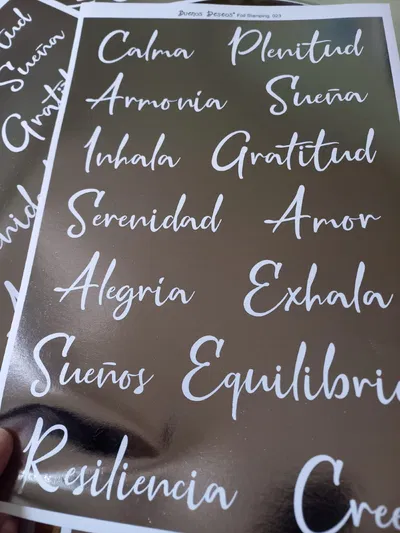 Buenos Deseos® Foil Stamping
Calma Plenitud
Armonia Sueña
Inhala Gratitud
Serenidad Amor
Alegria Exhala
Sueños Equilibri
Resiliencia Cree
Sueña